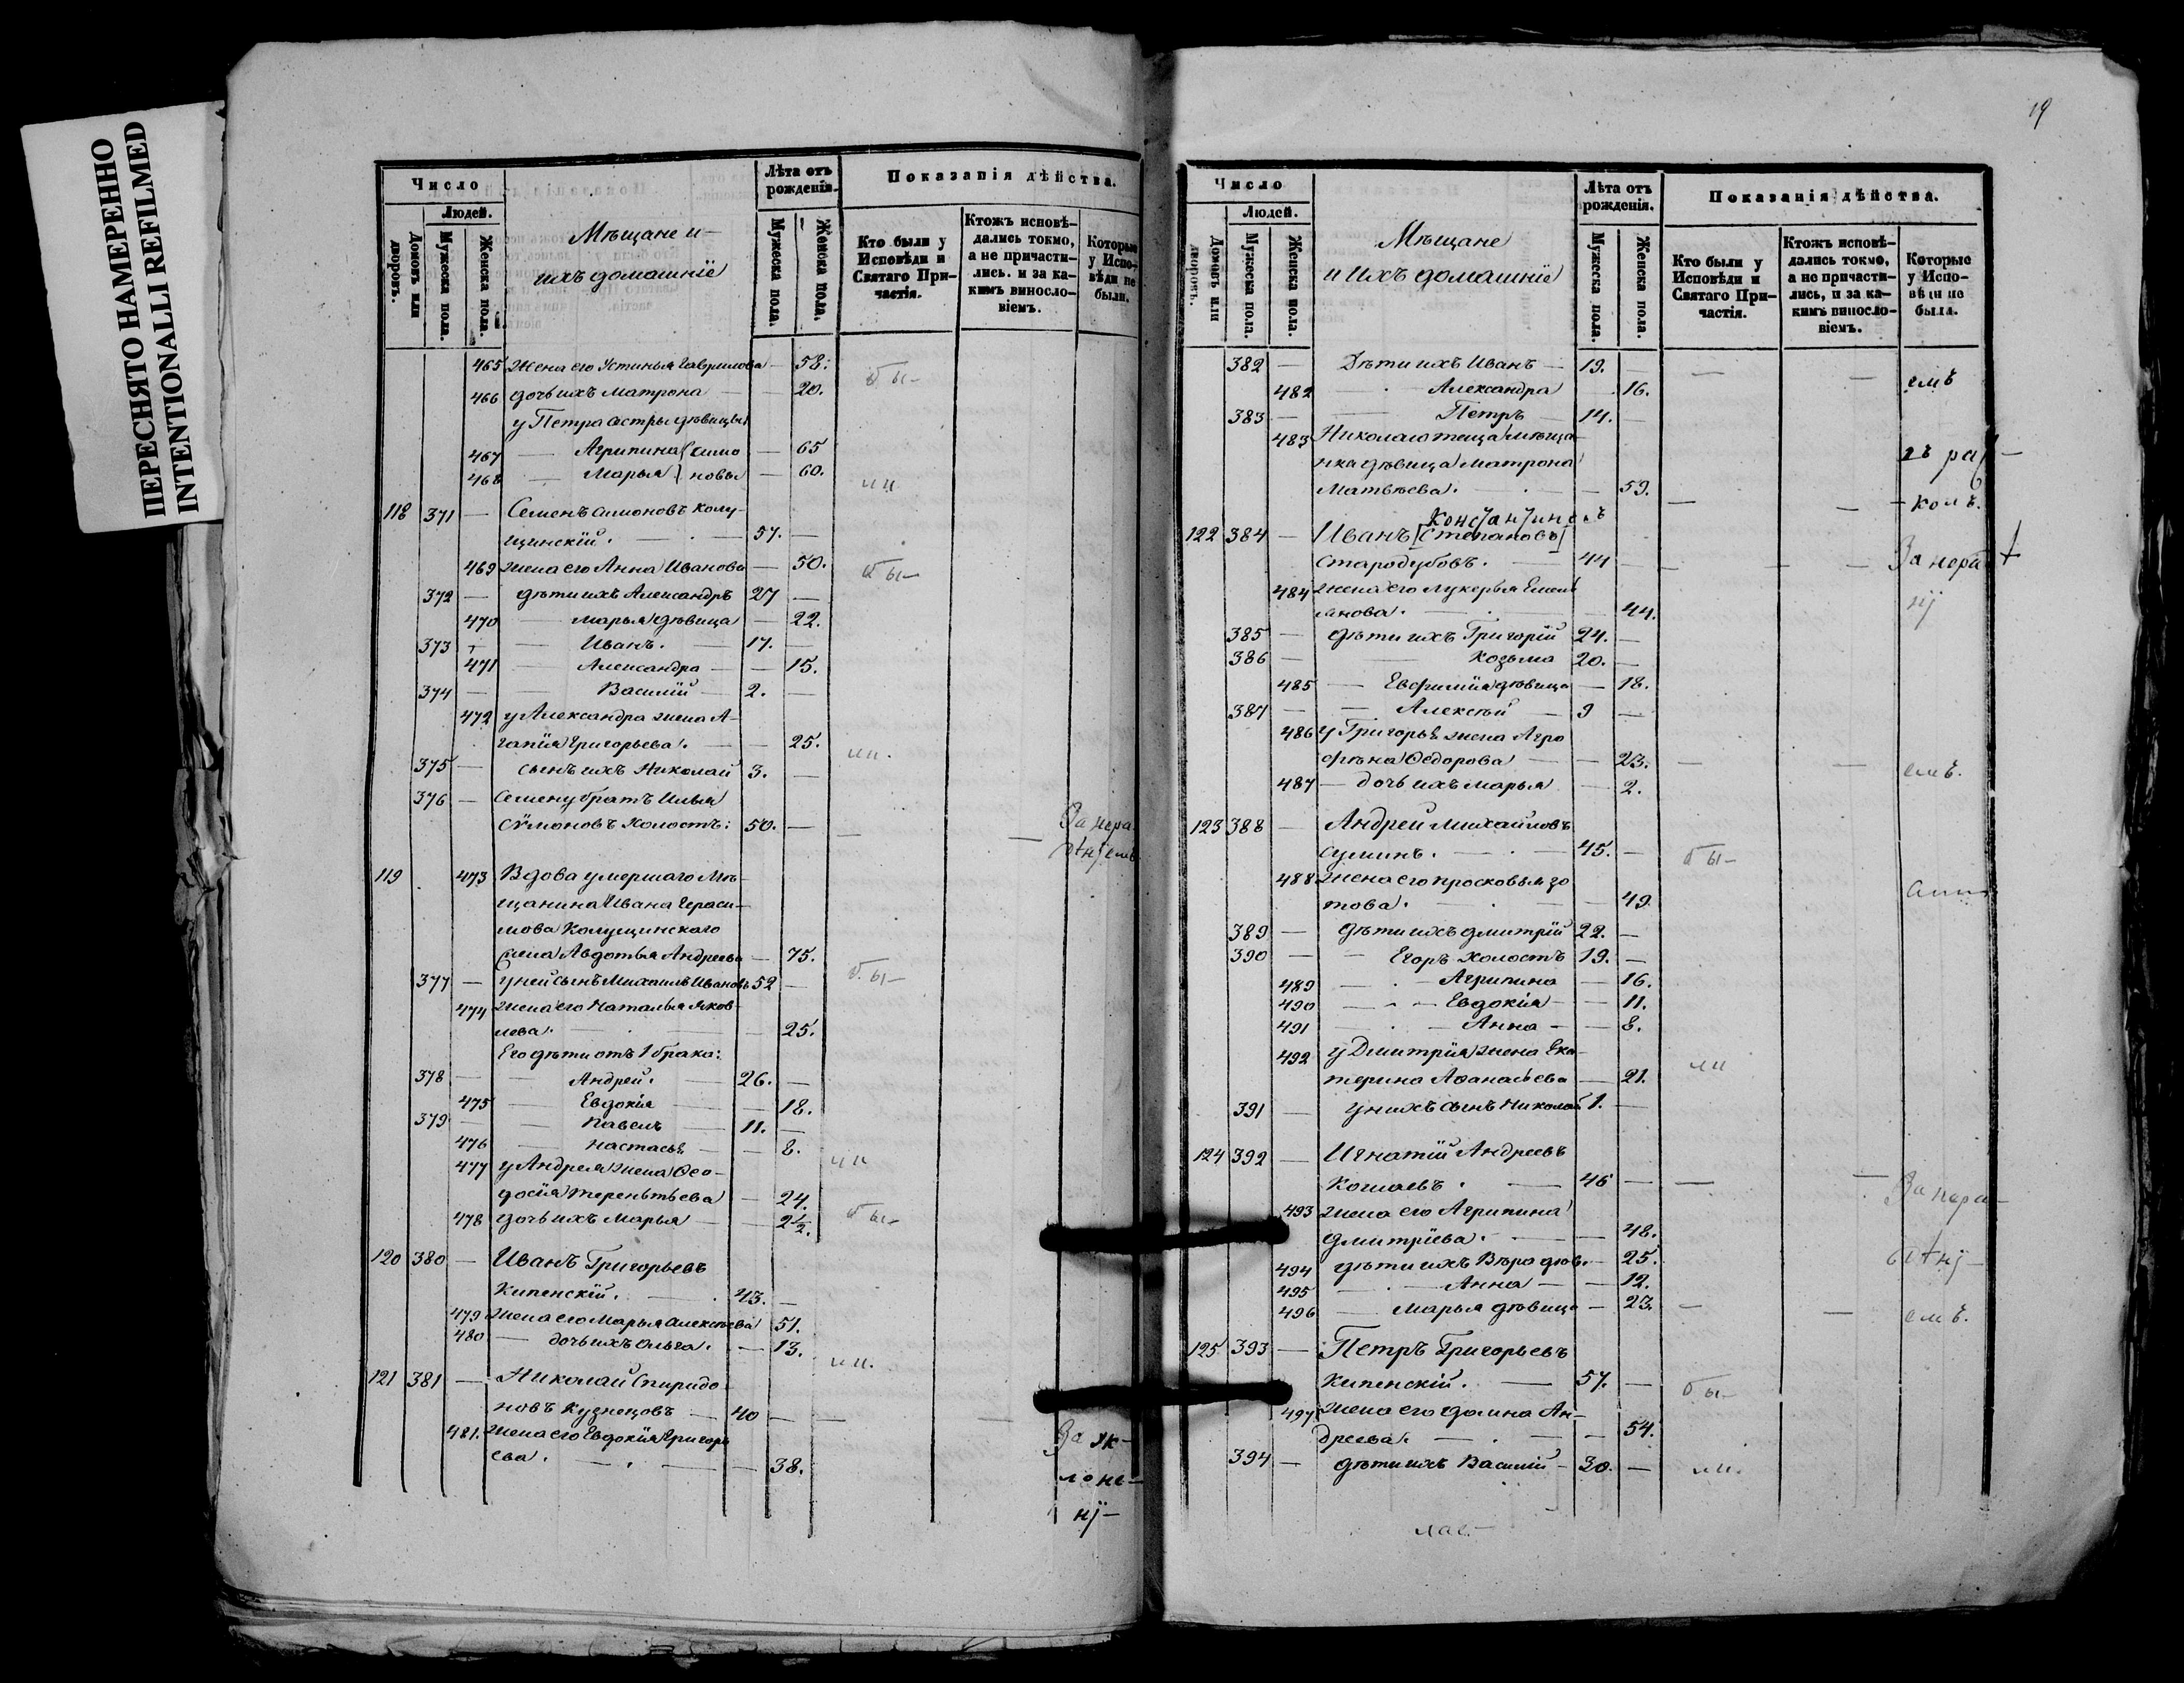 ПЕРЕСНЯТО НАМЕРЕННО
INTENTIONALLI REFILMED
Число
Людей.
Домовъ или дворовъ.
Мужеска пола.
Женска пола.
Мѣщане и
ихъ домашніе
Лѣта отъ рожденія.
Мужеска пола.
Женска пола.
Показанія дѣйства.
Кто были у Исповѣди и Святаго Причастія.
Ктожъ исповѣдались токмо, а не причастились, и за какимъ винословіемъ.
Которые у Исповѣди не были.
465 Жена его Устинья Гаврилова — 58.
бы-
466 дочь ихъ Матрона — 20.
у Петра сестры дѣвицы
467 — Агрипина Симо — 65
468 — Марья новы — 60.
ли
118 371 — Семенъ Симоновъ Колу-
щинскій. — 57. —
469 жена его Анна Иванова — 50.
бы-
372 — дѣти ихъ Александръ 27 —
470 — Марья дѣвица — 22.
373 — Иванъ. — 17. —
471 — Александра — 15.
374 — Василій 2. —
472 у Александра жена А-
гапія Григорьева. — 25.
ли.
375 — сынъ ихъ Николай 3. —
376 — Семену братъ Илья
Сѵмоновъ холостъ: 50. —
За нера
119 473 Вдова умершаго Мѣ-
щанина Ивана Гераси-
мова Колущинскаго
жена Авдотья Андреева — 75.
377 — у ней сынъ Михаилъ Ивановъ 52 —
бы-
474 жена его Наталья Яков-
лева. — 25.
Его дѣти отъ 1 брака:
378 — Андрей. — 26. —
475 — Евдокія — 18.
379 — Павелъ — 11. —
476 — Настасья — 8.
ли
477 у Андрея жена Ѳео-
досія Терентьева — 24.
478 дочь ихъ Марья — 2½.
бы-
120 380 — Иванъ Григорьевъ
Кипенскій. — 43. —
479 жена его Марья Алексѣева 51.
480 — дочь ихъ Ольга. — 13.
ли.
121 381 — Николай Спиридо
новъ Кузнецовъ — 40 —
481. жена его Евдокія Григорь
ева. — 38.
За ук-
лоне-
нј-
19
Число
Людей.
Домовъ или дворовъ.
Мужеска пола.
Женска пола.
Мѣщане
и ихъ домашніе
Лѣта отъ рожденія.
Мужеска пола.
Женска пола.
Показанія дѣйства.
Кто были у Исповѣди и Святаго Причастія.
Ктожъ исповѣдались токмо, а не причастились, и за какимъ винословіемъ.
Которые у Исповѣди не были.
382 — Дѣти ихъ Иванъ — 19. —
емъ
482 — Александра — 16.
383 — Петръ — 14. —
483 Николаю теща мѣща-
нка дѣвица Матрона
въ рас-
Матвѣева. — 59.
-колъ.
Константиновъ
122 384 — Иванъ [Степановъ]
Стародубовъ. — 44 —
За нера
484 жена его Лукерья Емель
янова. — 44.
нј
385 — дѣти ихъ Григорій 24. —
386 — Козьма 20. —
485 — Евфимія дѣвица — 18.
387 — Алексѣй — 9 —
486 у Григорья жена Агро
фѣна Ѳедорова — 23.
емъ.
487 — дочь ихъ Марья — 2.
123 388 — Андрей Михайловъ
Суминъ. — 45. —
бы-
488 жена его Просковья Зо
това. — 49.
389 — дѣти ихъ Дмитрій 22. —
390 — Егоръ холостъ 19. —
489 — Агрипина — 16.
490 — Евдокія — 11.
491 — Анна — 8.
492 у Дмитрія жена Ека-
терина Аѳанасьева — 21.
ли
391 — у нихъ сынъ Николай 1. —
124 392 — Игнатій Андреевъ
46 —
За нера-
493 жена его Агрипина
Дмитріева. — 48.
494 дѣти ихъ Вѣра дѣв. — 25.
495 — Анна — 12.
496 — Марья дѣвица — 23.
емъ.
125 393 — Петръ Григорьевъ
Кипенскій. — 57. —
бы-
497 жена его Домна Ан-
дреева. — 54.
394 — дѣти ихъ Василій — 30. —
ли.